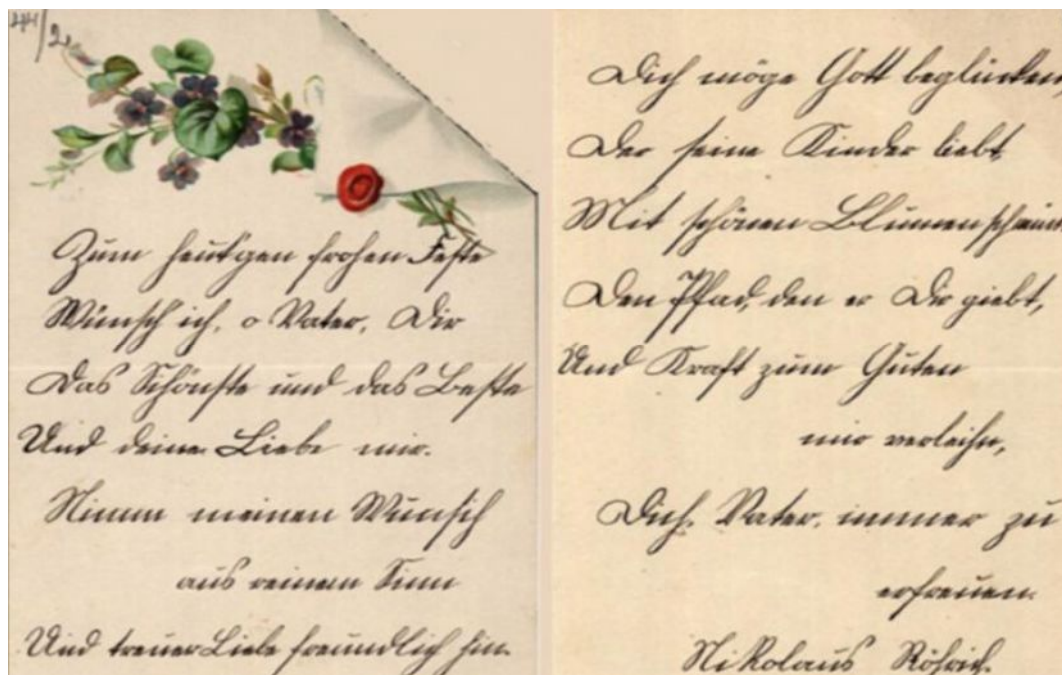 44/2
Zum heut'gen frohen Feste
Wünsch ich, o Vater, Dir
Das Schönste und das Beste
Und deine Liebe mir.
Nimm meinen Wunsch
aus reinem Sinn
Und treuer Liebe freundlich hin.
Dich möge Gott beglücken,
Der seine Kinder liebt
Mit schönen Blumen schmücken
Den Pfad, den er Dir giebt,
Und Kraft zum Guten
mir verleihn,
Dich, Vater, immer zu
erfreuen.
Nikolaus Röhrich.